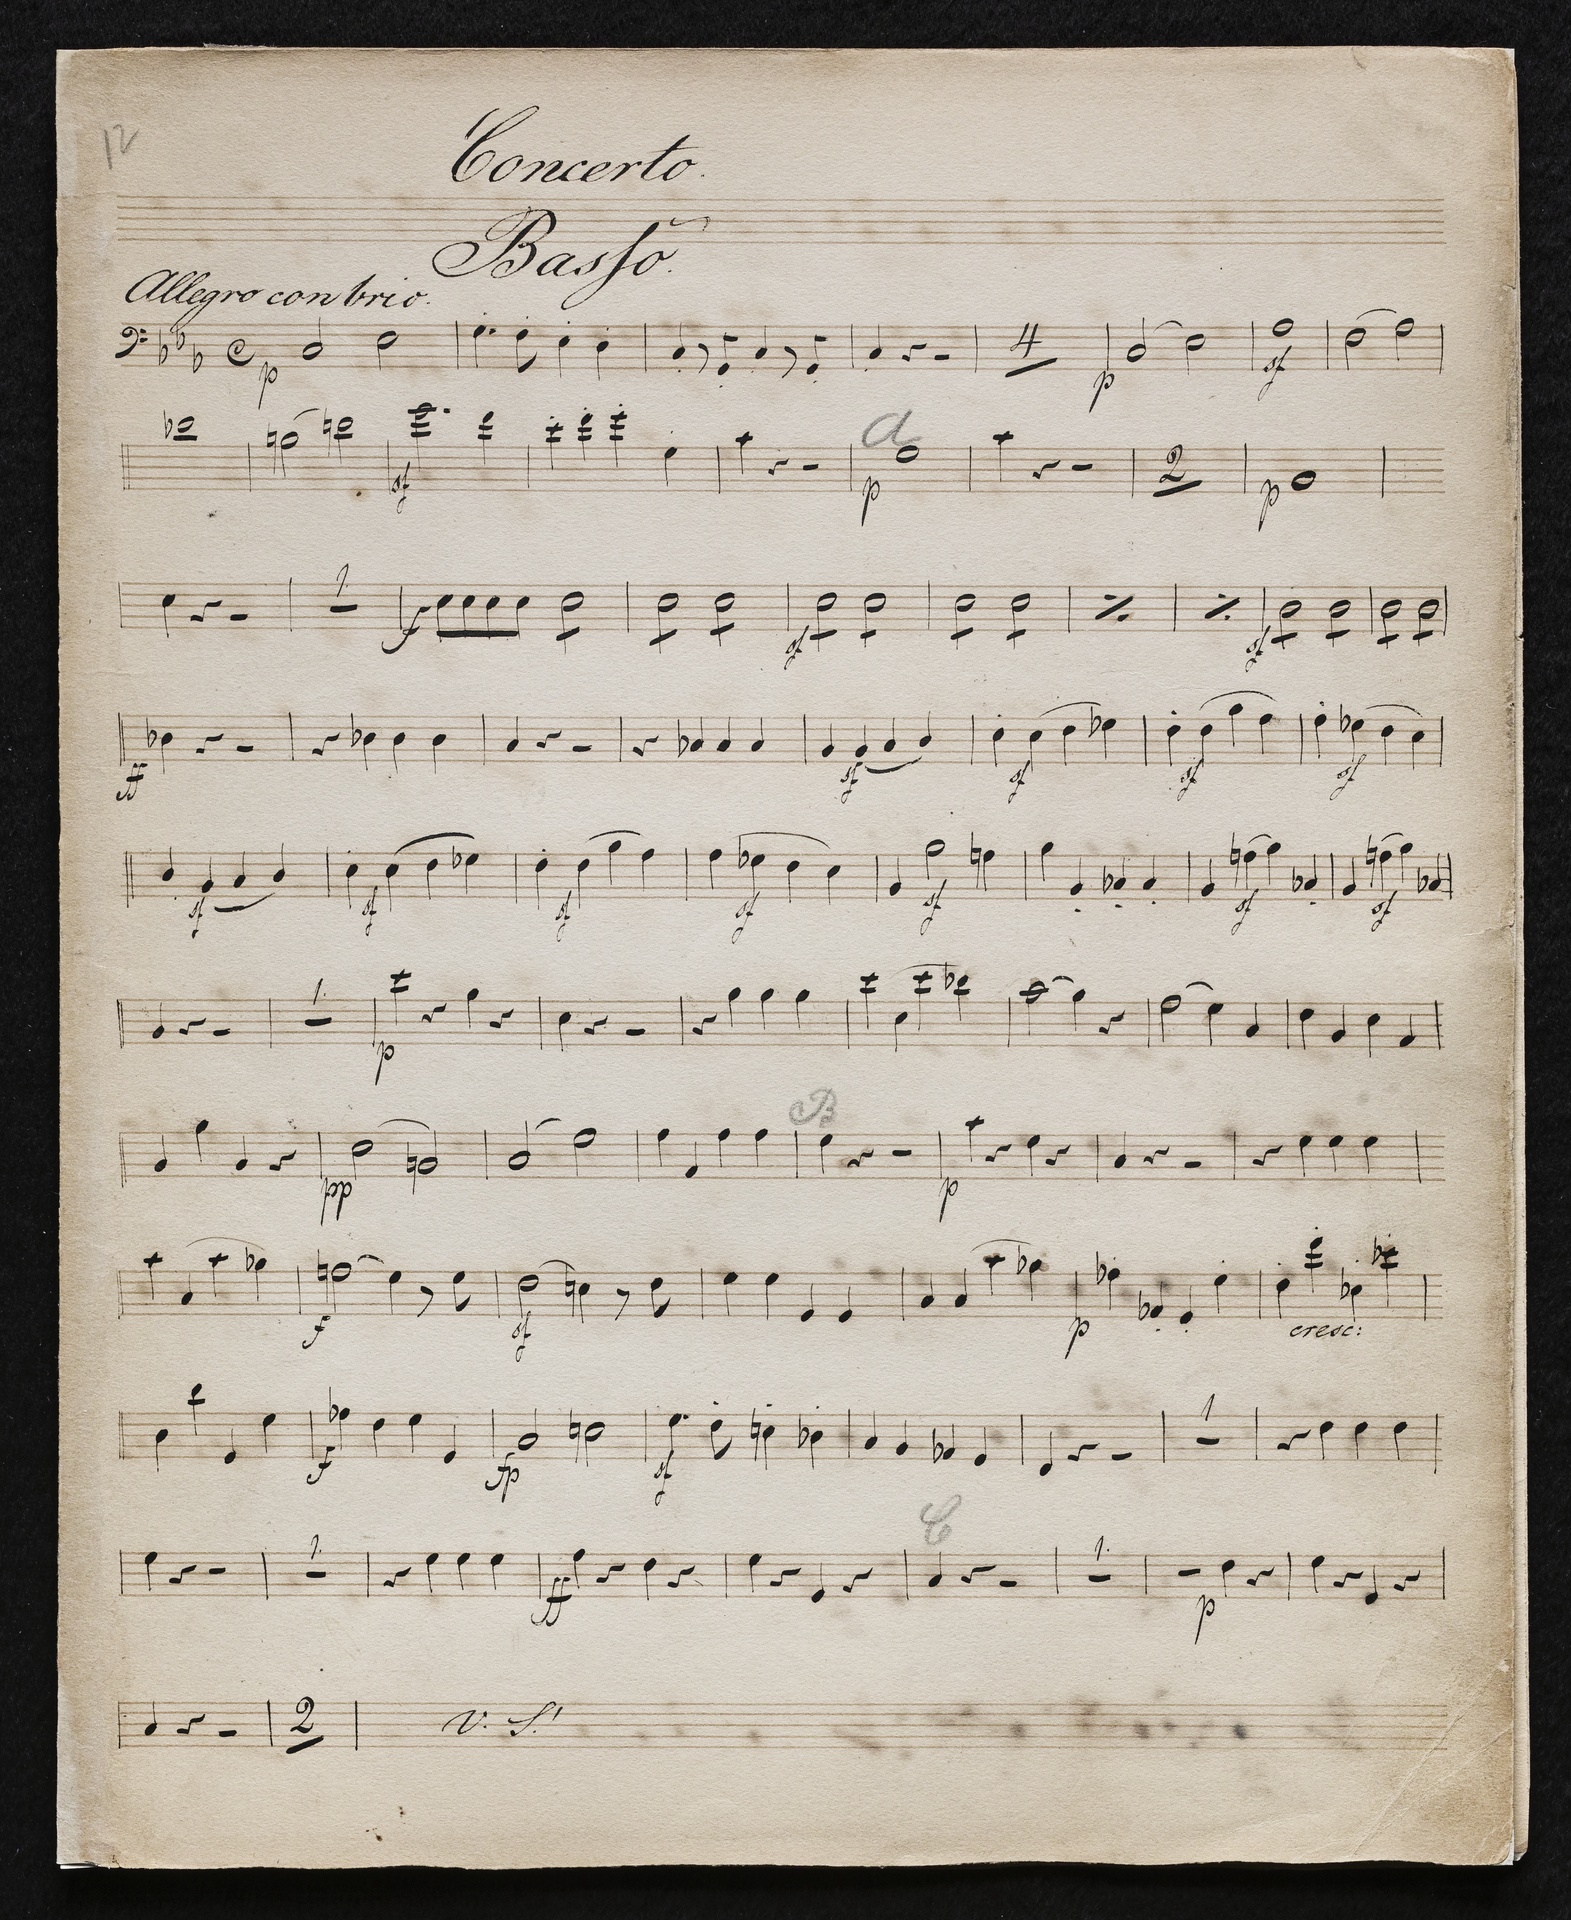 12
Concerto.
Basso.
Allegro con brio.
p 4 p sf
sf a p 2 p
1. f sf sf
ff sf sf sf sf
sf sf sf sf sf sf sf
1. p
pp B p
f sf p cresc:
f fp sf 1
1. ff C 1. p
2 V. S.!